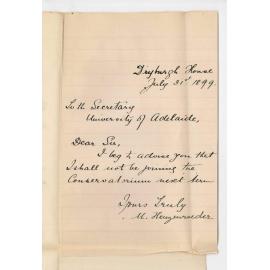 Dryburgh House
July 31st 1899.
To the Secretary
University of Adelaide,
Dear Sir,
I beg to advise you that
I shall not be joining the
Conservatorium next term
Yours Truly
M. Heuzenroeder